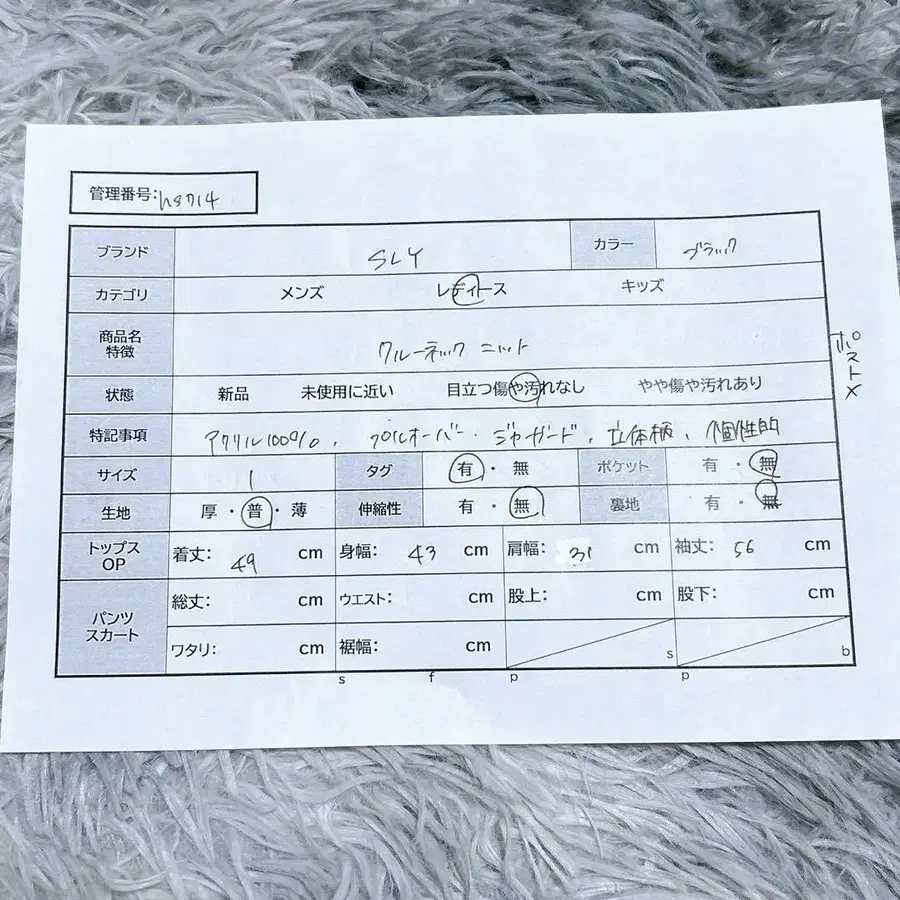 管理番号:hs714
ブランド SLY カラー ブラック
カテゴリ メンズ レディース キッズ
商品名 特徴 クルーネック ニット
状態 新品 未使用に近い 目立つ傷や汚れなし やや傷や汚れあり
特記事項 アクリル100%、プルオーバー、ジャガード、立体柄、個性的
サイズ 1 タグ 有・無 ポケット 有・無
生地 厚・普・薄 伸縮性 有・無 裏地 有・無
トップス OP 着丈: 49 cm 身幅: 43 cm 肩幅: 31 cm 袖丈: 56 cm
パンツ スカート 総丈: cm ウエスト: cm 股上: cm 股下: cm
ワタリ: cm 裾幅: cm s b
s f p p
ポスト×